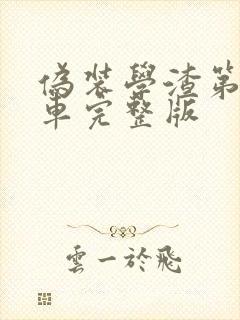 偽裝學渣第
車完整版
雲一於飛